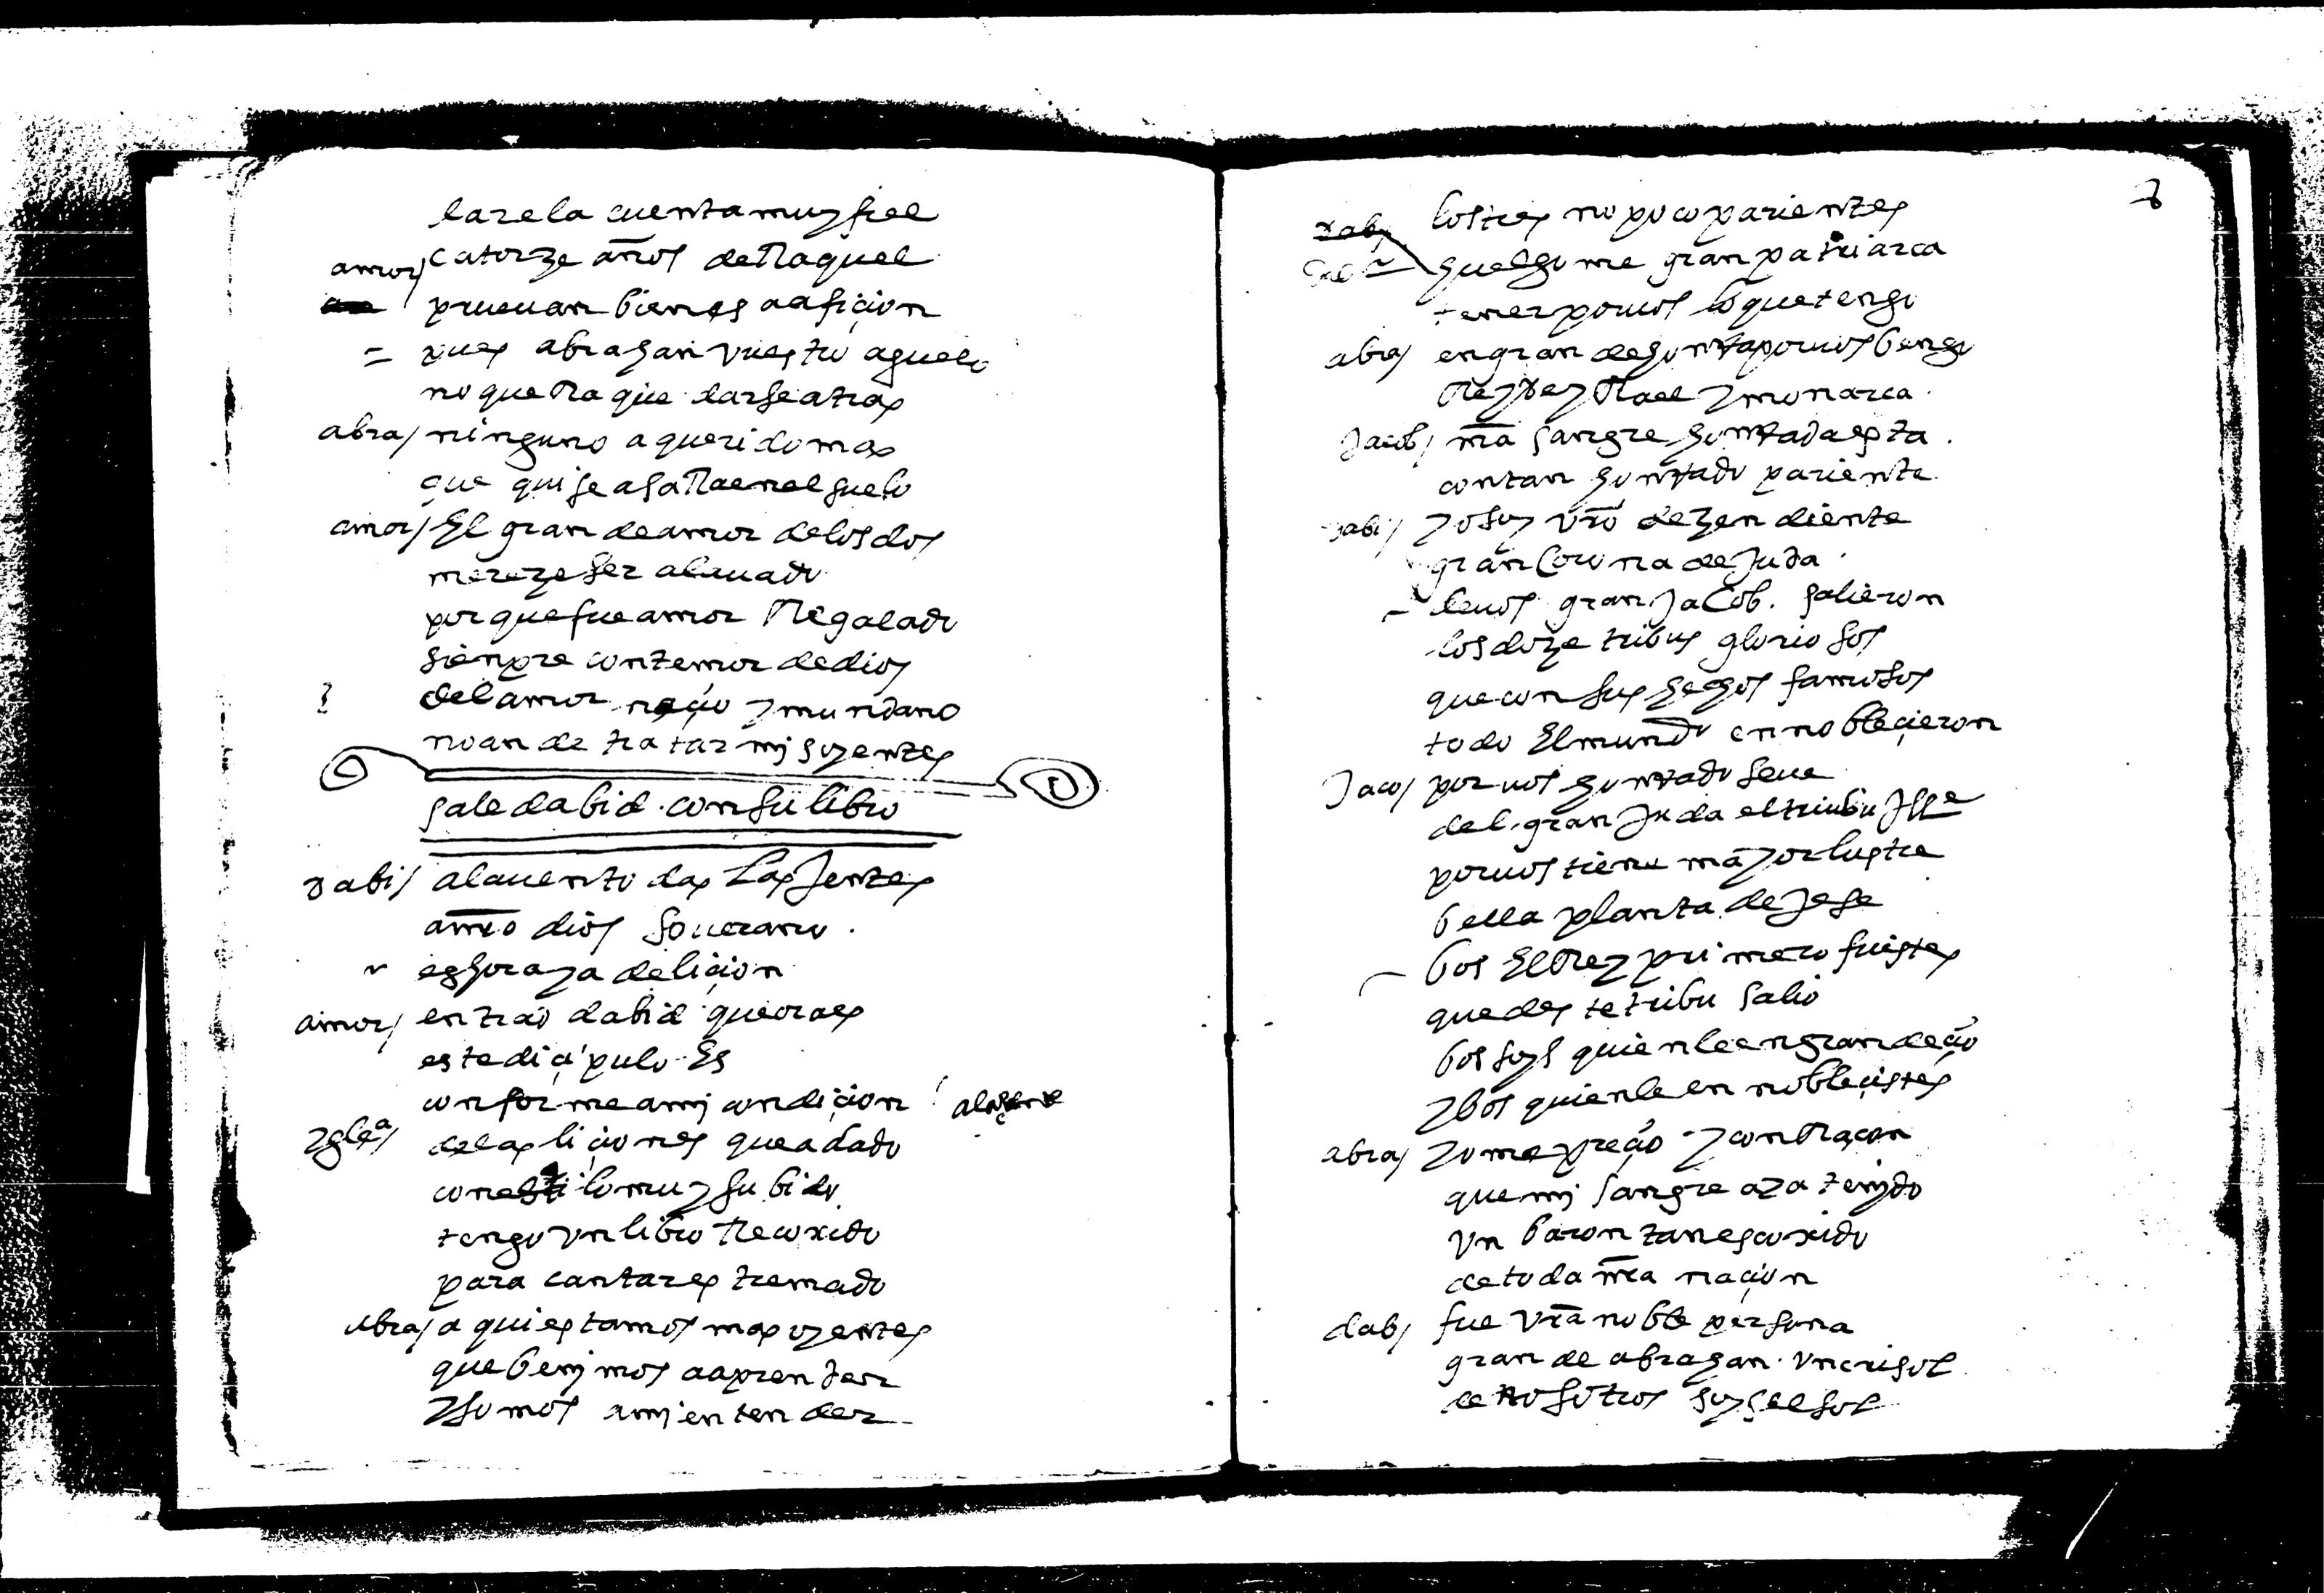 lare la cuenta muy fiel
amor/ catorze años de Raquel
prueuan bien es aafiçion
= pues abrahan vuestro aguelo
no querra quedarse atras
abra/ ninguno a querido mas
que quise a saRa en el suelo
amor/ El grande amor de los dos
mereze ser alauado
porque fue amor Regalado
sienpre con temor de dios
del amor neçio y mundano
no an de tratar mis oyentes
sale dabid con su libro
dabi/ alauento das Las Jentes
a nr̄o dios souerano
es hora ya de liçion
amor/ entrad dabid que ora es
este diçipulo Es
conforme a mj condiçion
ygleª/ de las liçiones que a dado
con estilo muy subido
tengo vn libro Recoxido
para cantar estremado
abra/ aqui estamos mas oyentes
que benjmos a aprender
y somos a mj entender
7
los tres no poco parientes
huelgome gran patriarca
tener por uos lo que tengo
abra/ en grande honrra por uos bengo
Rey de ysRael y monarca
Jacob/ mi sangre honrrada esta
con tan honrrado pariente
dabi/ yo soy vr̄o dezendiente
gran Corona de Juda
de uos gran JaCob salieron
los doze tribus gloriosos
que con sus hechos famosos
todo El mundo ennobleçieron
Jaco/ por uos honrrado se ue
del gran Juda el tribu
por uos tiene mayor lustre
bella planta de Jese
bos El Rey primero fuistes
que deste tribu salio
bos soys quien le engrandeçio
y bos quien le ennobleçistes
abra/ yo me preçio y con Raçon
que mj sangre aya tenjdo
vn baron tan escoxido
de toda nr̄a naçion
dab/ fue vr̄a noble persona
grande abrahan vn crisol
de nosotros soys el sol